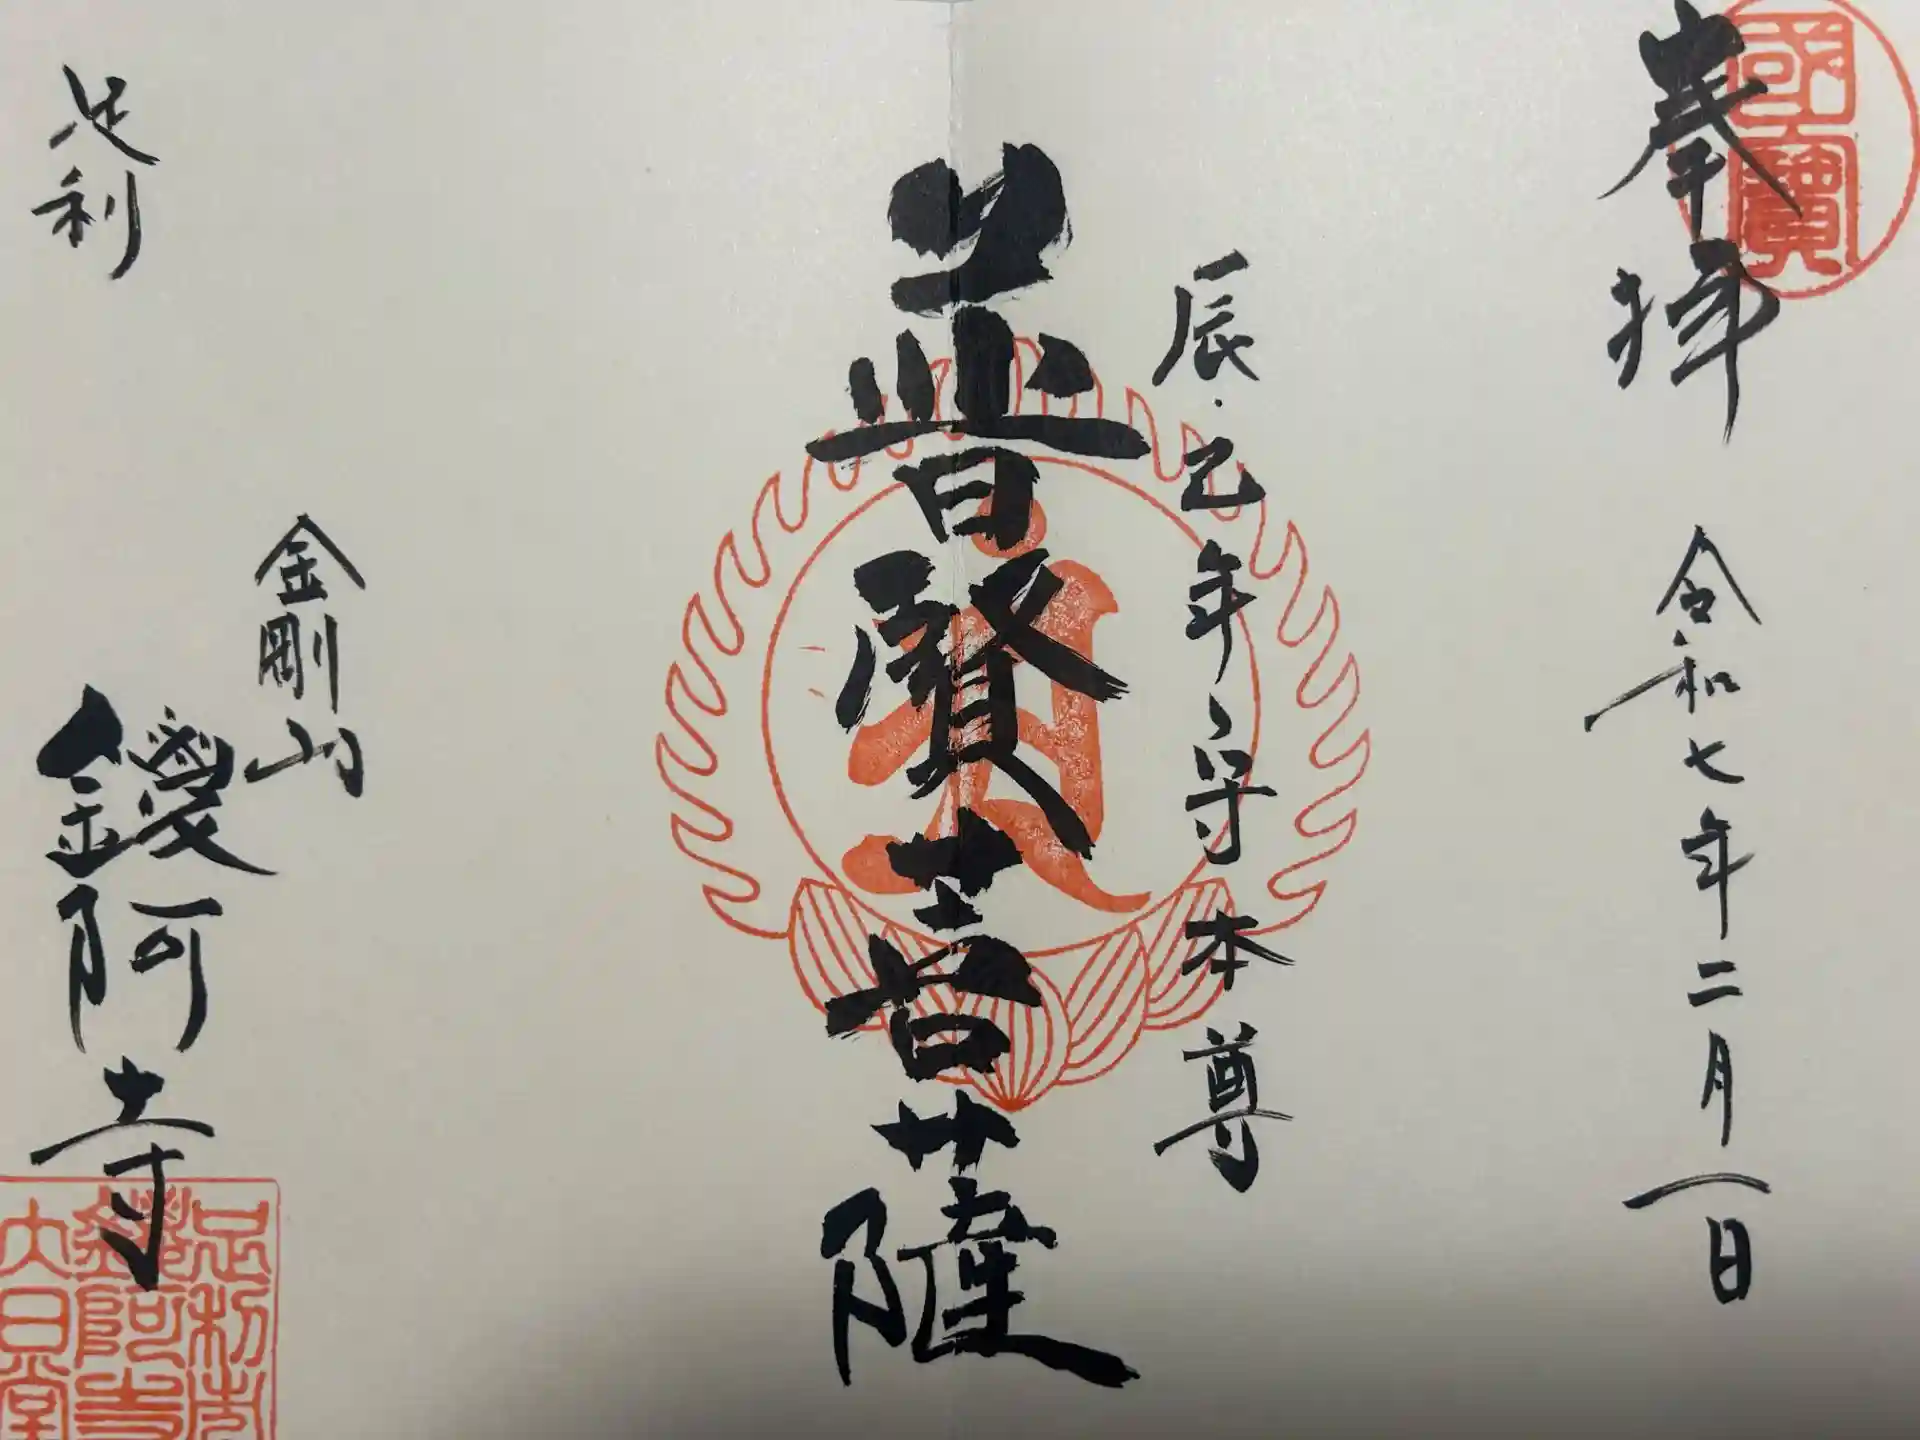 國寶
奉拝 令和七年二月一日
辰・巳年守本尊
普賢菩薩
金剛山
足利
鑁阿寺
足利市
鑁阿寺
大日堂